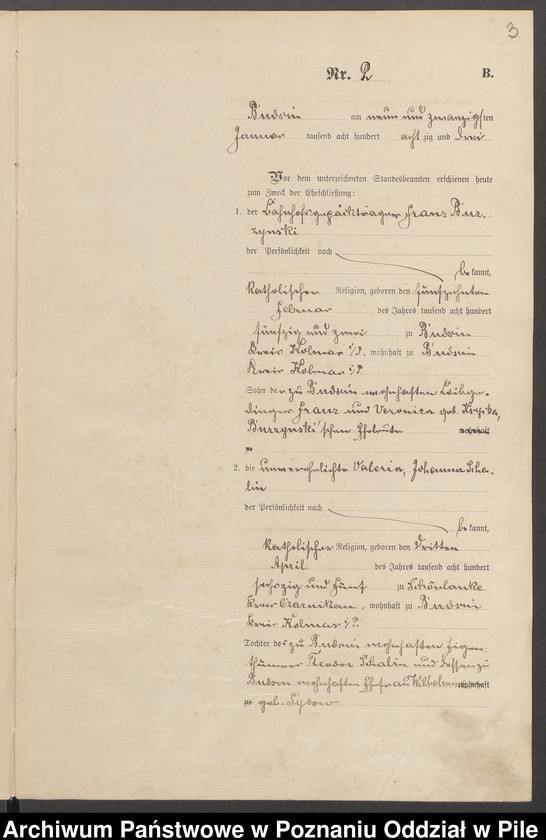 3
Nr. 2 B.
Budsin am neun und zwanzigsten
Januar tausend acht hundert acht zig und drei
Vor dem unterzeichneten Standesbeamten erschienen heute
zum Zweck der Eheschließung:
1. der Bahnhofsgepäckträger Franz Bur-
zynski
der Persönlichkeit nach
be kannt,
katholischer Religion, geboren den fünfzehnten
Februar des Jahres tausend acht hundert
fünfzig und zwei zu Budsin
Kreis Kolmar i/P., wohnhaft zu Budsin
Kreis Kolmar i/P.
Sohn der zu Budsin wohnhaften Leibge-
dinger Franz und Veronica geb.
Burzynski'schen Eheleute wohnhaft
zu
2. die unverehelichte Valeria, Johanna Scha-
lin
der Persönlichkeit nach
be kannt,
katholischer Religion, geboren den dritten
April des Jahres tausend acht hundert
sechszig und fünf zu Schönlanke
Kreis Czarnikau, wohnhaft zu Budsin
Kreis Kolmar i/P.
Tochter des zu Budsin wohnhaften Eigen-
thümers Theodor Schalin und dessen zu
Budsin wohnhaften Ehefrau Wilhelmine wohnhaft
zu geb. Sydow
Archiwum Państwowe w Poznaniu Oddział w Pile